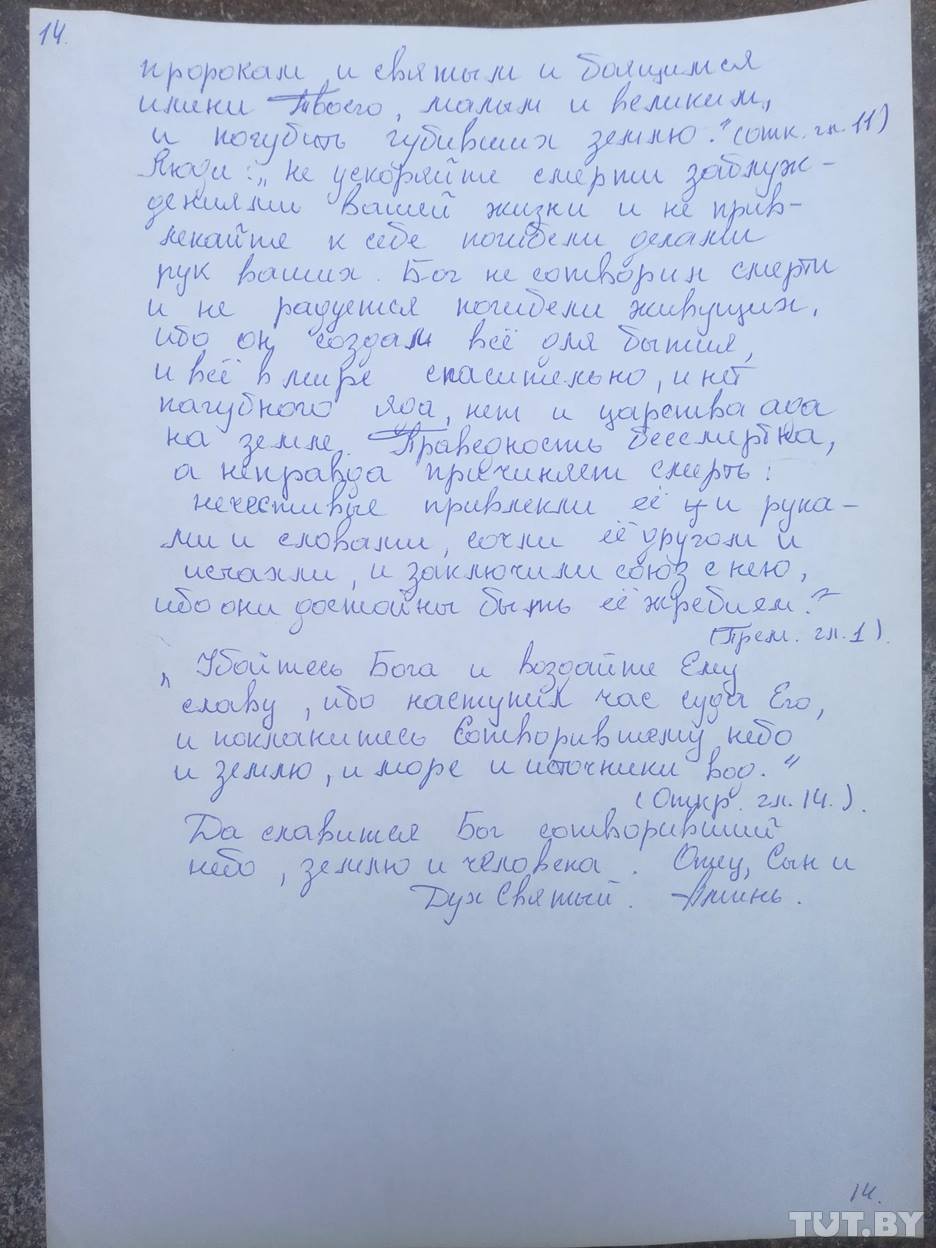 14.
пророкам и святым и боящимся
имени Твоего, малым и великим,
и погубить губивших землю." (отк. гл. 11)
Люди: „не ускоряйте смерти заблуж-
дениями вашей жизни и не прив-
лекайте к себе погибели делами
рук ваших. Бог не сотворил смерти
и не радуется погибели живущих,
ибо он создал всё для бытия,
и всё в мире спасительно, и нет
пагубного яда, нет и царства ада
на земле. Праведность бессмертна,
а неправда причиняет смерть:
нечестивые привлекли её и рука-
ми и словами, сочли её другом и
исчахли, и заключили союз с нею,
ибо они достойны быть её жребием."
(Прем. гл. 1).
„Убойтесь Бога и воздайте Ему
славу, ибо наступил час суда Его,
и поклонитесь Сотворившему небо
и землю, и море и источники вод."
(Откр. гл. 14.).
Да славится Бог сотворивший
небо, землю и человека. Отец, Сын и
Дух Святый. Аминь.
14.
TUT.BY